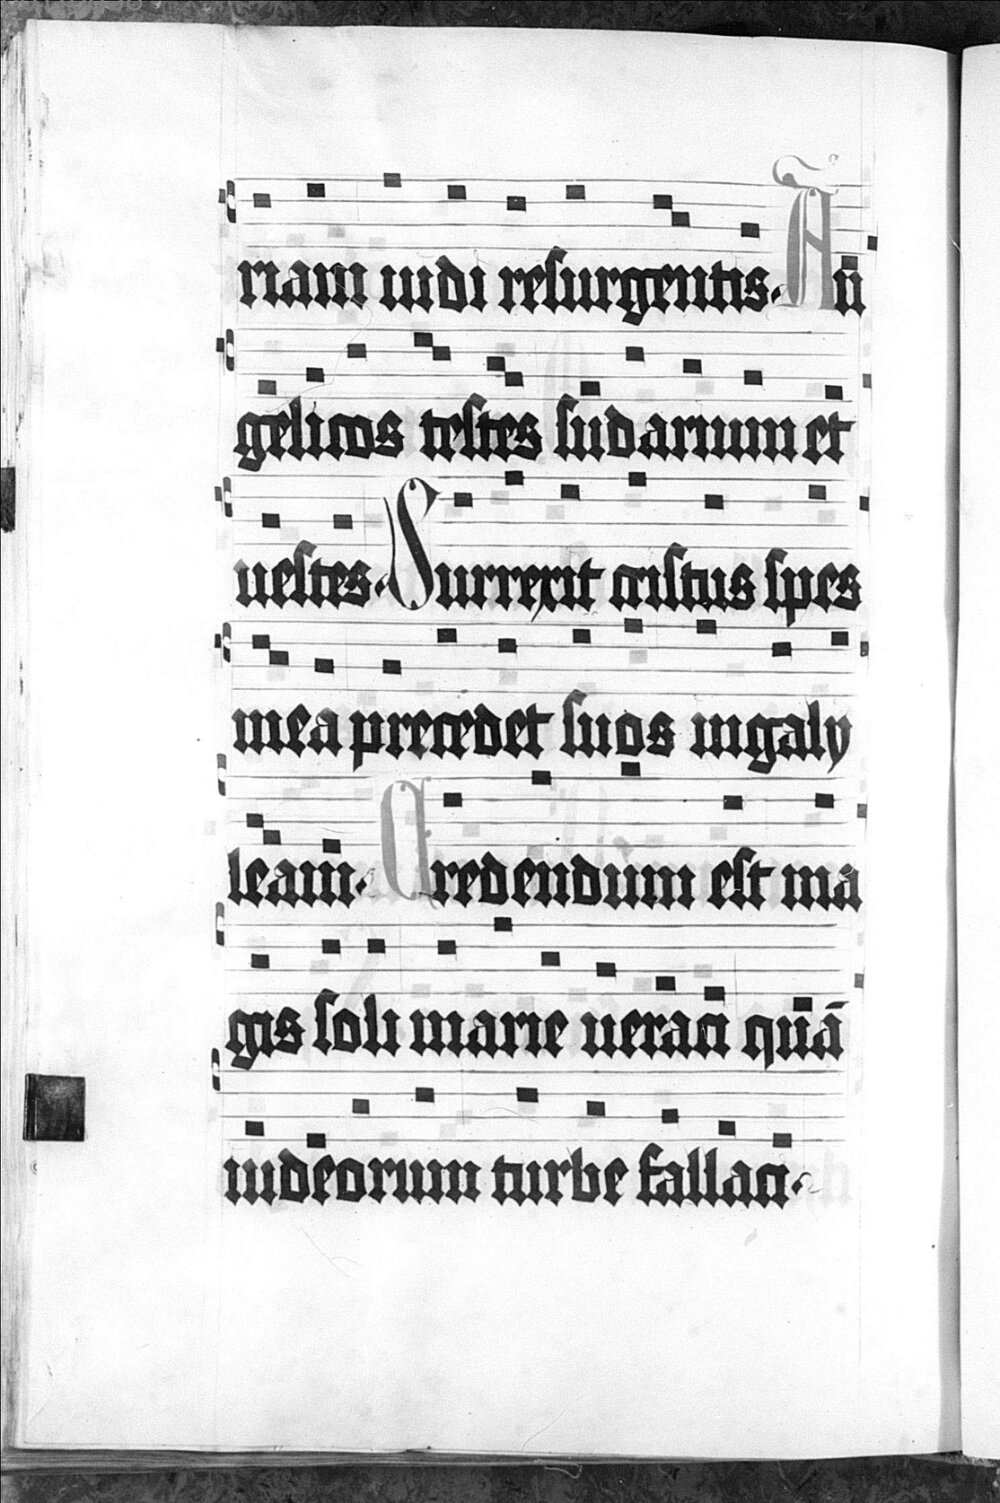 riam uidi resurgentis. An
gelicos testes sudarium et
uestes. Surrexit cristus spes
mea precedet suos in galy
leam. Credendum est ma
gis soli marie ueraci quā
iudeorum turbe fallaci.